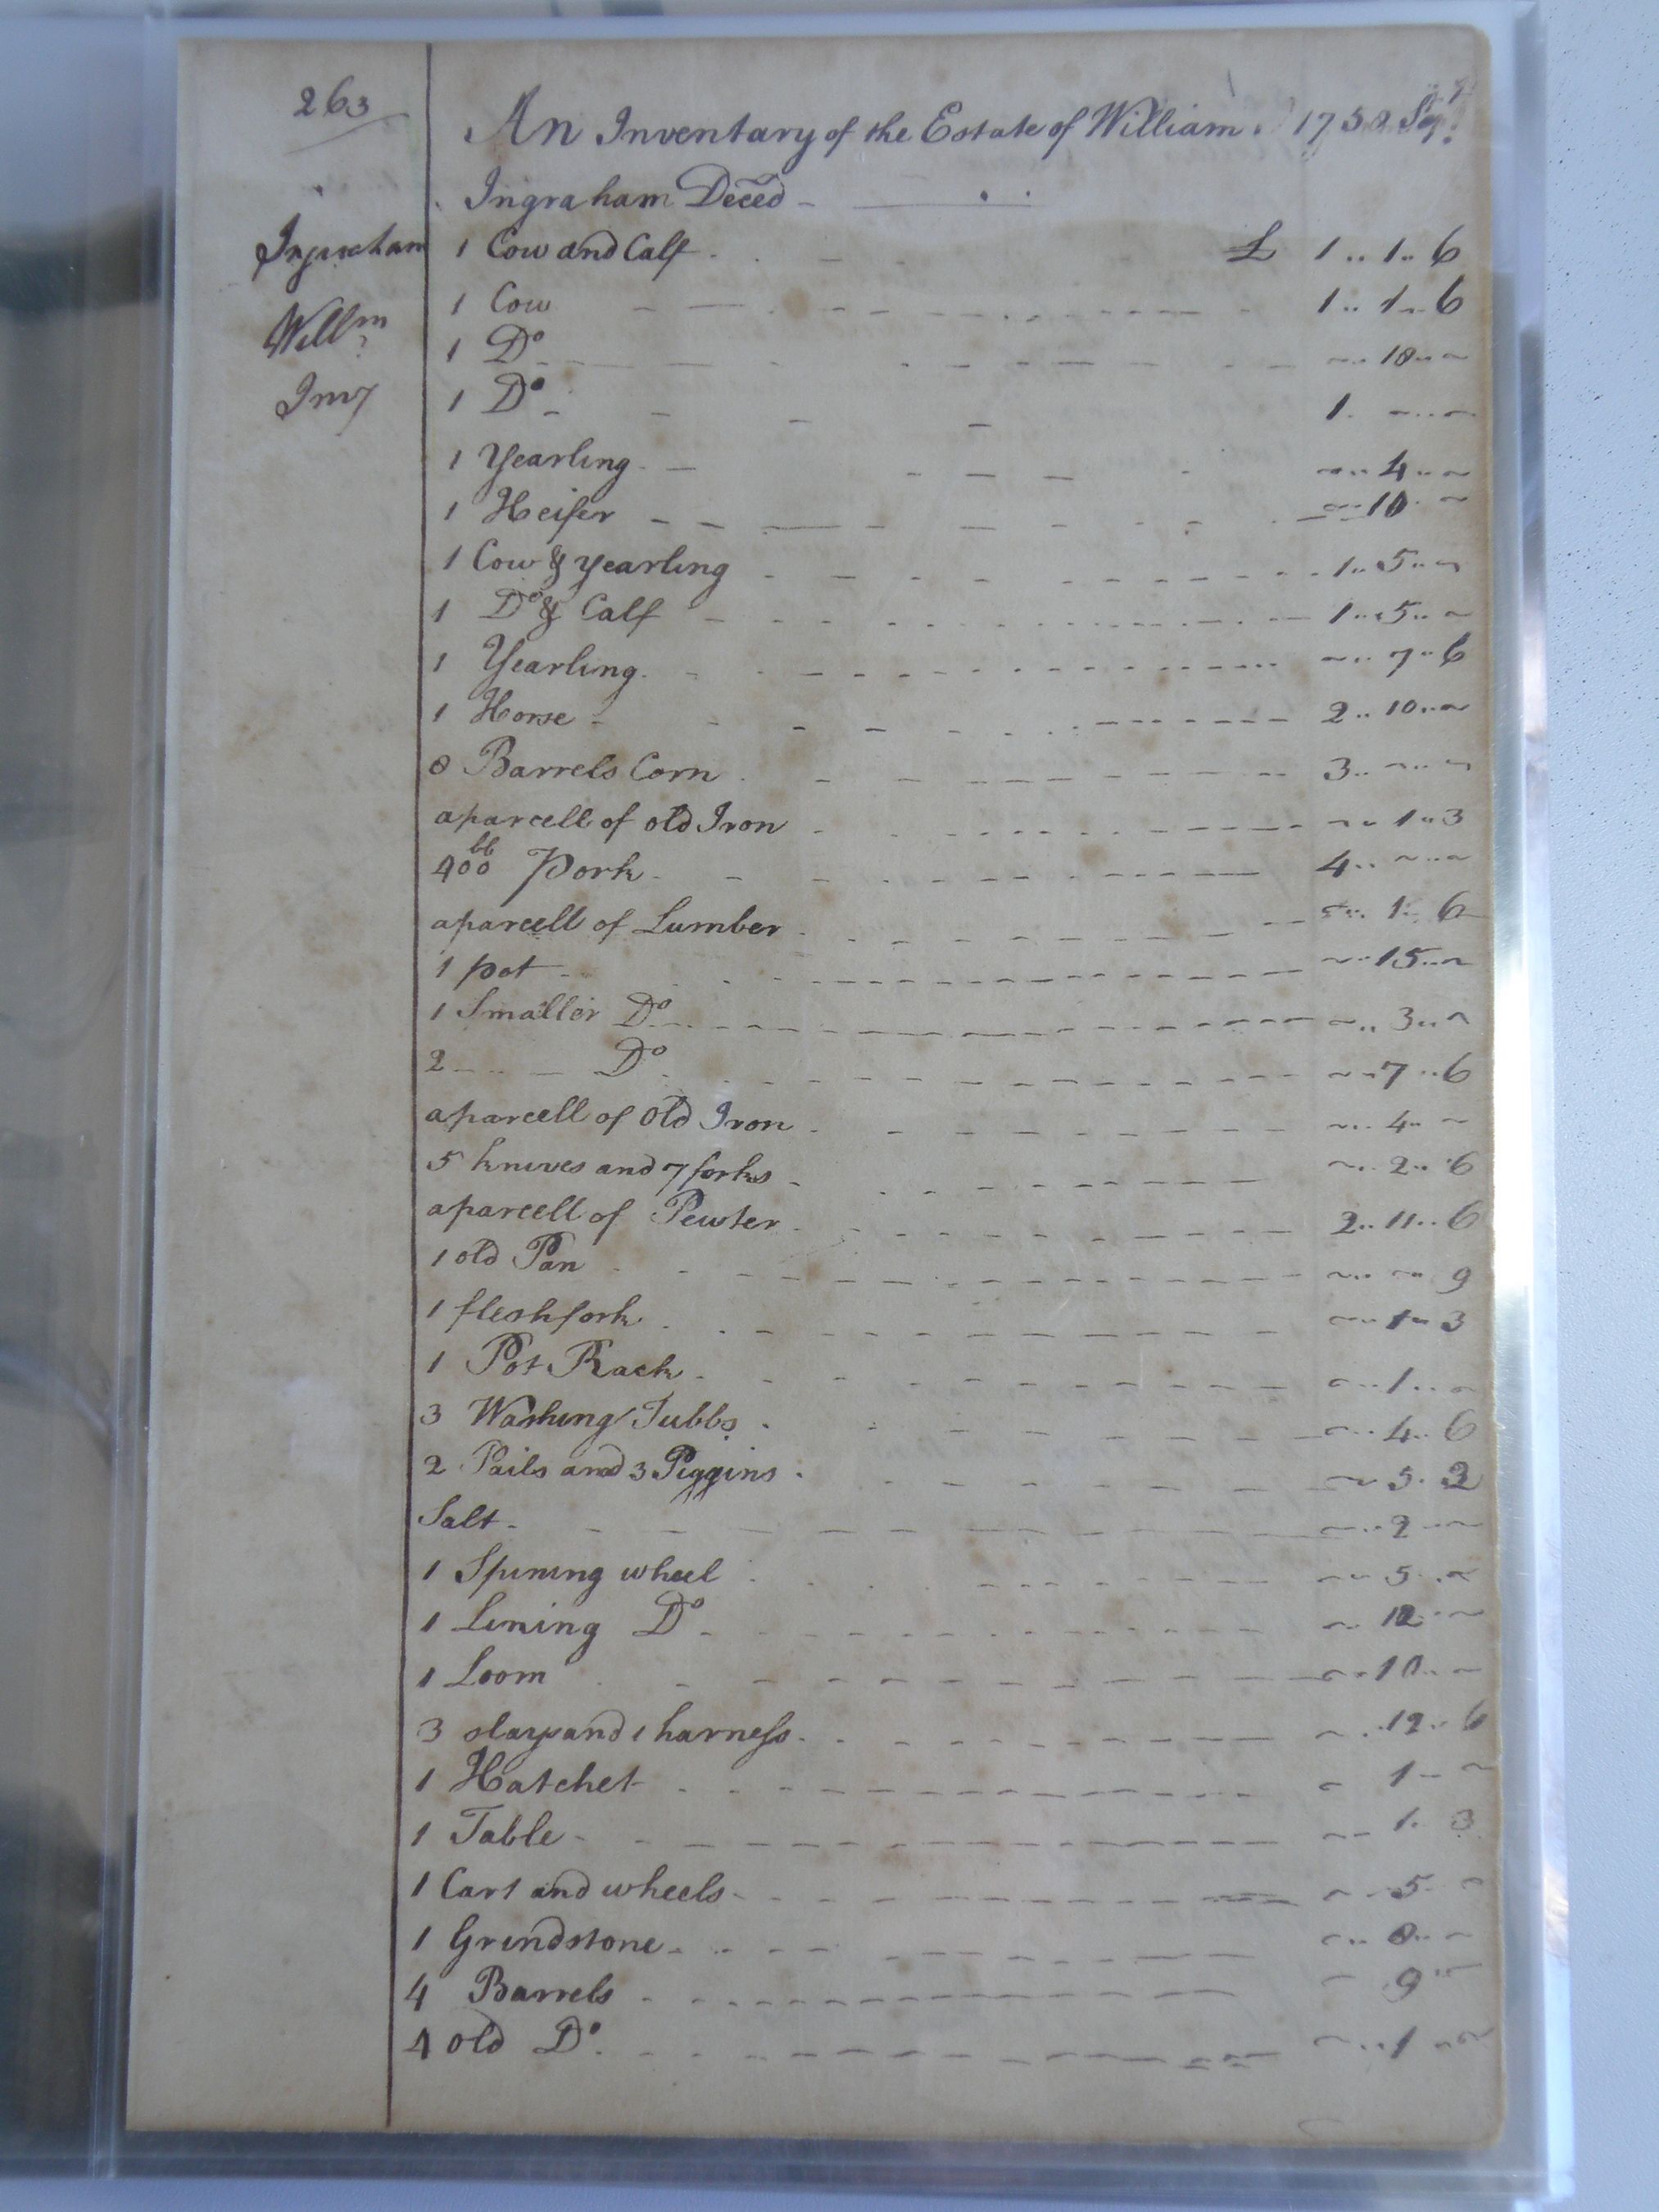 263
An Inventary of the Estate of William 1758 Sepr.
Ingraham Deced
Ingraham
Willm
Invy
1 Cow and Calf £ 1..1..6
1 Cow 1..1..6
1 Do ~..18..~
1 Do 1. ~..~
1 Yearling ~..4..~
1 Heifer ~..10..~
1 Cow & yearling 1..5..~
1 Do & Calf 1..5..~
1 Yearling ~..7..6
1 Horse 2..10..~
8 Barrels Corn 3..~..~
a parcell of old Iron ~..1..3
400 lb Pork 4..~..~
a parcell of Lumber ~..1..6
1 pot ~..15..~
1 Smaller Do ~..3..~
2 Do ~..7..6
a parcell of Old Iron ~..4..~
5 knives and 7 forks ~..2..6
a parcell of Pewter 2..11..6
1 old Pan ~..~..9
1 fleshfork ~..1..3
1 Pot Rack ~..1..~
3 Washing Tubbs ~..4..6
2 Pails and 3 Piggins ~..5..3
Salt ~..2..~
1 Spining wheel ~..5..~
1 Lining Do ~..12..~
1 Loom ~..10..~
3 slays and 1 harness ~..12..6
1 Hatchet ~ 1..~
1 Table ~ 1..3
1 Cart and wheels ~..5..~
1 Grindstone ~..8..~
4 Barrels ~ 9..~
4 old Do ~..1..~